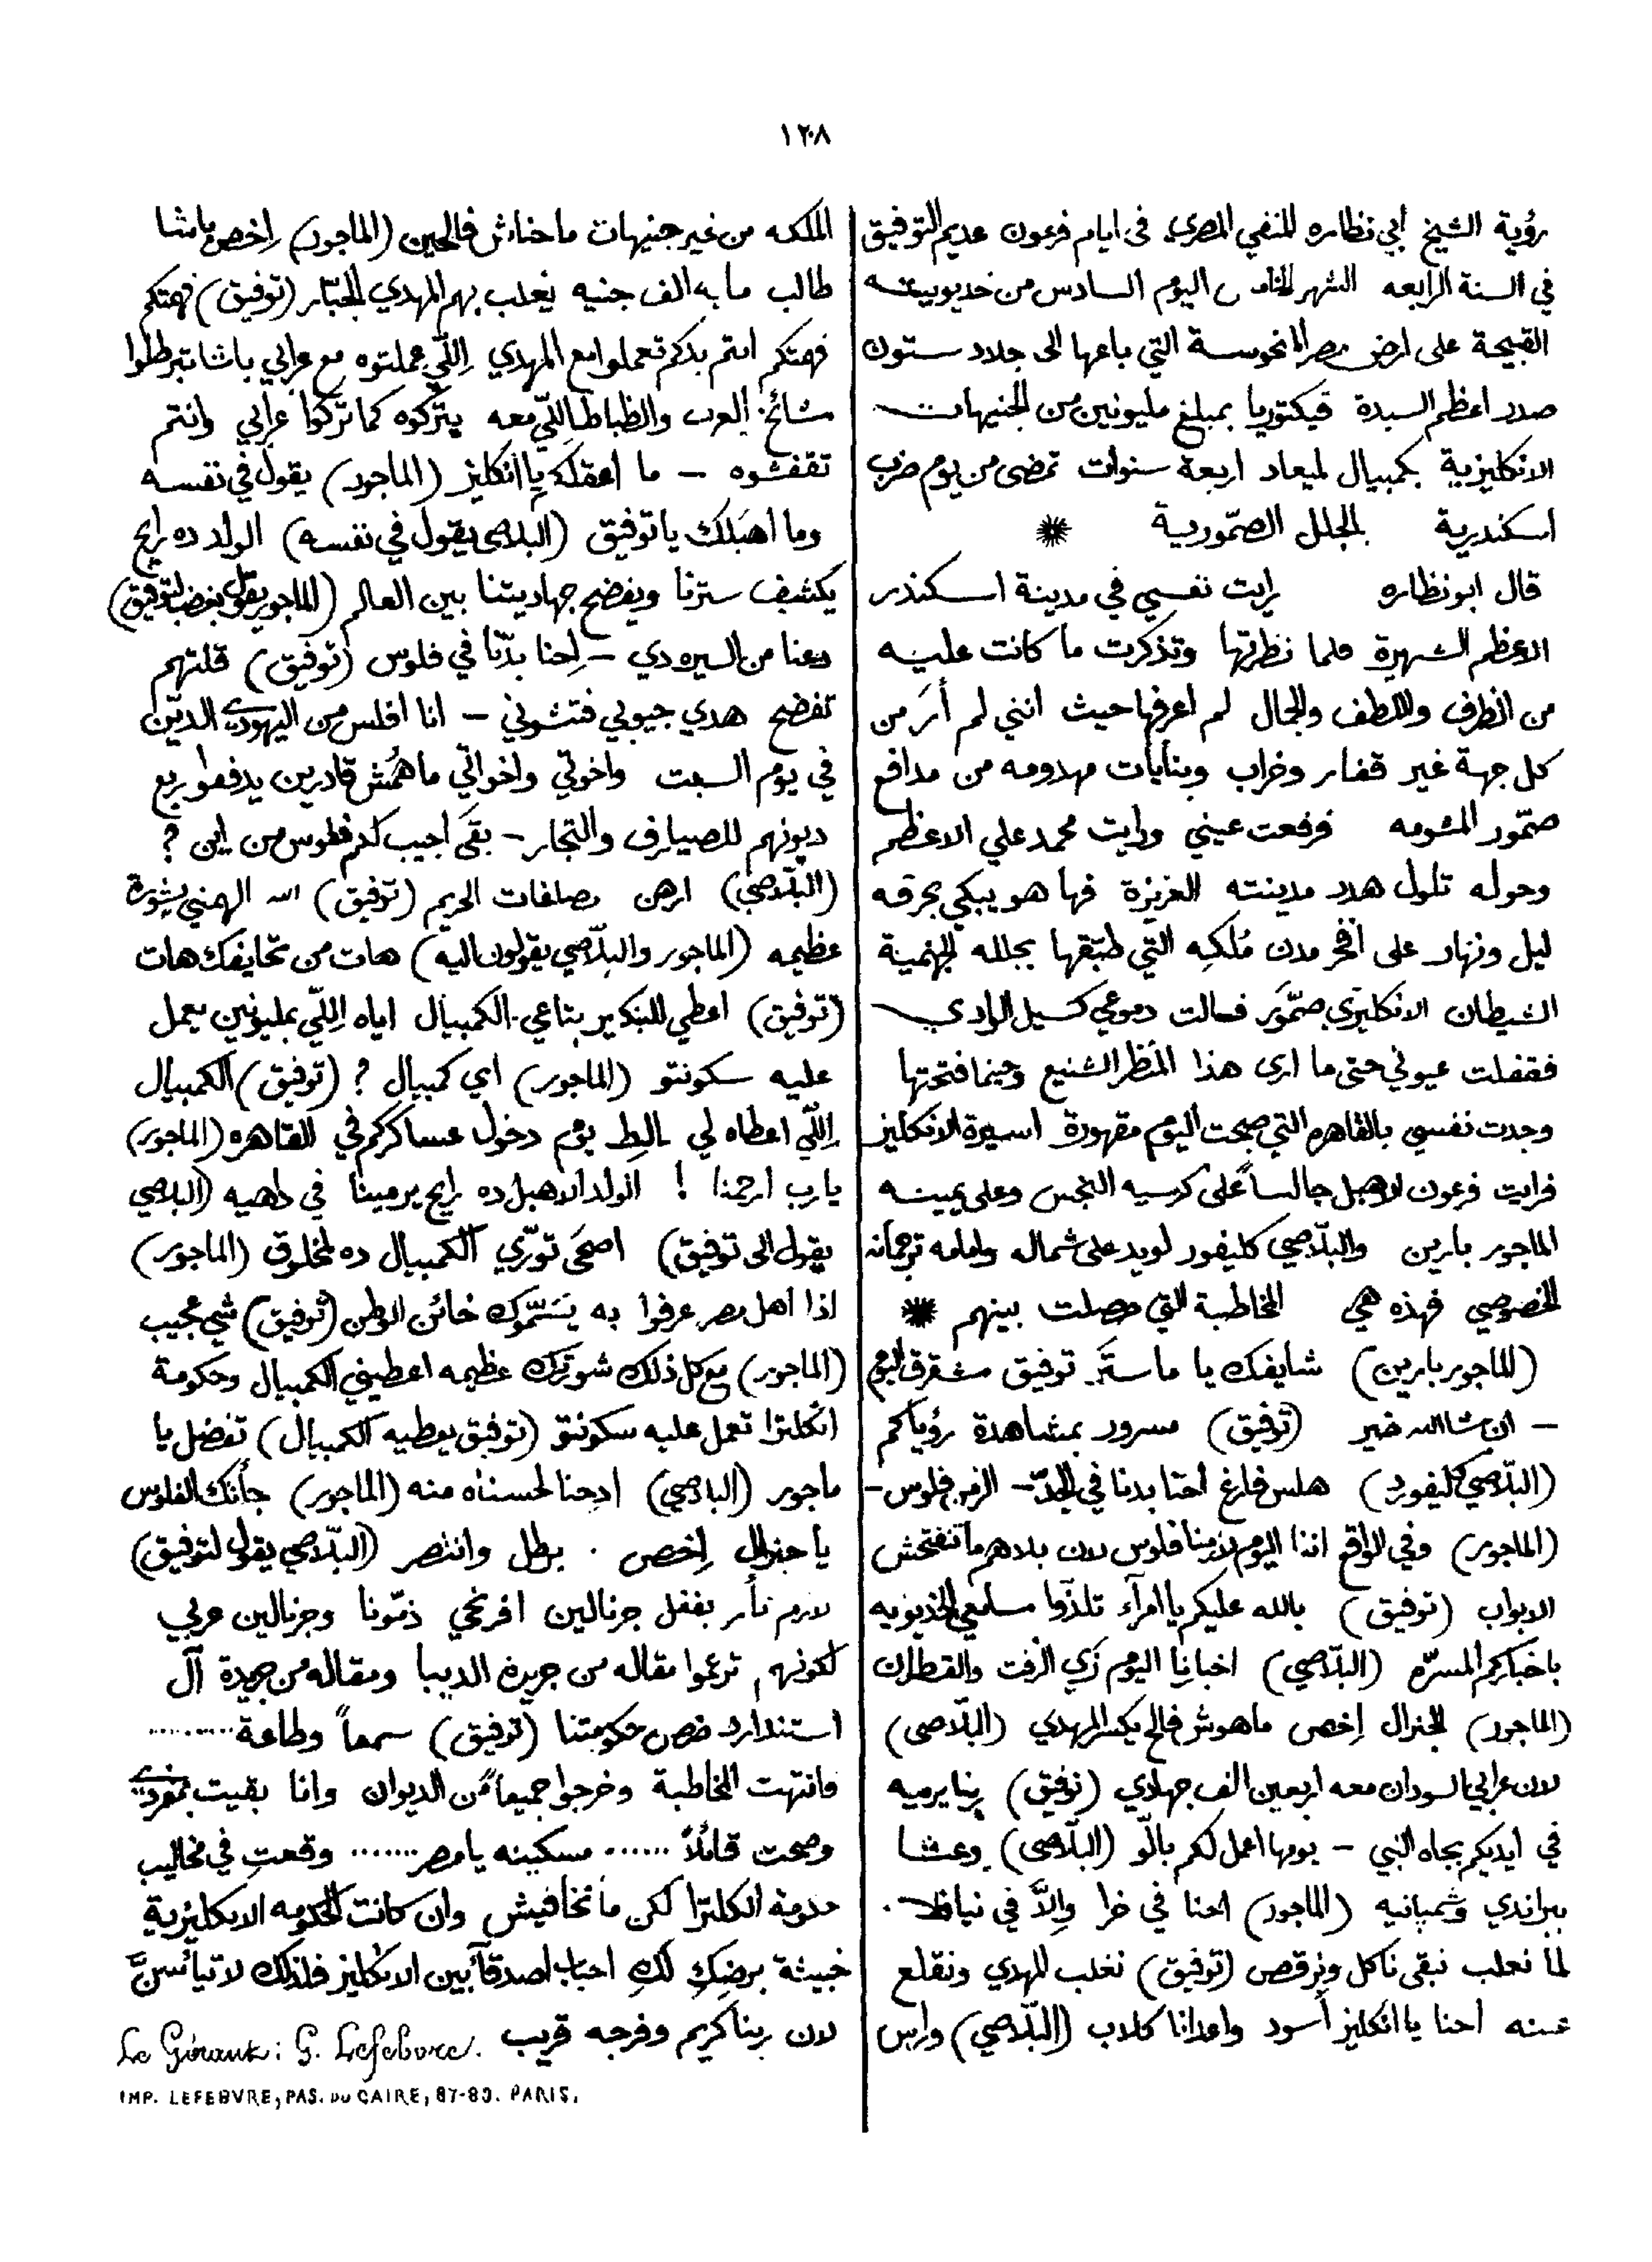 ١٢٠٨
رؤية الشيخ أبي نظاره المنفي المصري في ايام فرعون عديم التوفيق
في السنة الرابعه الشهر الخامس اليوم السادس من خديوييته
القبيحة على ارض مصر المنحوسة التي باعها الى جلاد ستون
صدر اعظم السيدة فيكتوريا بمبلغ مليونين من الجنيهات
الانكليزية بكمبيال لميعاد اربعة سنوات تمضى من يوم ضرب
اسكندرية بالجلل الصمّورية
قال ابو نظاره رايت نفسي في مدينة اسكندر
الاعظم الشهيرة فلما نظرتها وتذكرت ما كانت عليه
من الظرف واللطف والجمال لم اعرفها حيث انني لم أرَ من
كل جهة غير قفار وخراب وبنايات مهدومه من مدافع
صمّور المشومه فرفعت عيني ورايت محمد علي الاعظم
وحوله تلول هدد مدينته العزيزة فها هو يبكي بحرقه
ليل ونهار على افخر مدن مُلكِه التي طبّقها بجلله الجهنمية
الشيطان الانكليزي صمّور فسالت دموعي كسيل الوادي
فقفلت عيوني حتى ما ارى هذا المنظر الشنيع وحينما فتحتها
وجدت نفسي بالقاهره التي صبحت اليوم مقهورة اسيرة الانكليز
فرايت فرعون الاهبل جالساً على كرسيه النجس وعلى يمينه
الماجور بارين والبلّاصي كليفور لويد على شماله وامامه ترجمانه
الخصوصي فهذه هي المخاطبة التي حصلت بينهم
(الماجور بارين) شايفك يا ماستَر توفيق مشقرق اليوم
— ان شا الله خير (توفيق) مسرور بمشاهدة رؤياكم
(البلّاصي كليفورد) هلس فارغ أحنا بدنا في الجدّ – الزمن فلوس –
(الماجور) وفي الواقع اننا اليوم لازمنا فلوس لان بلاهم ما تنفتحش
الابواب (توفيق) بالله عليكم يا امرآء تلذّوا مسامعي الخديويه
باخباركم المسرّه (البلّاصي) اخبارنا اليوم زَي الزفت والقطران
(الماجور) الجنرال إخص ماهوش فالح يكسر المهدي (البلّاصى)
لان عرابي السودان معه اربعين الف جهادي (توفيق) ربنا يرميه
في أيديكم بجاه النبي – يومها اعمل لكم بالّو (البلّاصى) وعشا
ببراندي وشمبانيه (الماجور) احنا في خرا والّا في نيافه.
لما نغلب نبقى ناكل ونرقص (توفيق) نغلب المهدي ونقلع
عينه أحنا يا انكليز أسود واعدانا كلاب (البلّاصي) وارس
الملكه من غير جنيهات ما حناش فالحين (الماجور) إخص باشا
طالب مايه الف جنيه يغلب بهم المهدي الجبّار (توفيق) فهمتكم
فهمتكم انتم بدكم تعملوا مع المهدي اِللّي عملتوه مع عرابي باشا تبرطلوا
مشائخ العرب والظباط اللّي معه يتركوه كما تركوا عرابي وانتم
تقفشوه – ما اعقلك يا انكليز (الماجور) يقول في نفسه
وما أهبَلك يا توفيق (البلاصى يقول في نفسه) الولد ده رايح
يكشف سترنا ويفضح جهاديتنا بين العالم (الماجور يقول بغضب لتوفيق)
دعنا من السيره دي – لِحنا بدّنا في فلوس (توفيق) قلتهم
تفضح هدي جيوبي فتشوني – انا افلس من اليهودي الديّن
في يوم السبت واخوتي واخواتي ما همُش قادرين يدفعوا ربع
ديونهم للصيارف والتجار – بقَى أجيب لكم فلوس من اين ؟
(البلّاصي) ارهن مصاغات الحريم (توفيق) الله الهمني بشورة
عظيمه (الماجور والبلّاصي يقولون اليه) هات من تحايفك هات
(توفيق) اعطي للبنكير بتاعي الكمبيال اياه اِللّي بمليونين يعمل
عليه سكونتو (الماجور) اي كمبيال ؟ (توفيق) الكمبيال
اِللّي اعطاه لي مالِط يوم دخول عساكركم في القاهره (الماجور)
يا رب ارحمنا ! الولد الاهبل ده رايح يرمينا في داهيه (البلاصي
يقول الى توفيق) اصحَى تورّي الكمبيال ده لمخلوق (الماجور)
اذا أهل مصر عرفوا به يَسَمّوك خائن الوطن (توفيق) شي عجيب
(الماجور) مع كل ذلك شورتك عظيمه اعطيني الكمبيال وحكومة
انكلترا تعمل عليه سكونتو (توفيق يعطيه الكمبيال) تفضل يا
ماجور (البلاصي) ادحنا لحسناه منه (الماجور) جأتك الفلوس
يا جنرال إخص . برطل وانتصر (البلّاصي يقول لتوفيق)
لازم تأمر بقفل جرنالين افرنجي ذمّونا وجرنالين عربي
لكونهم ترجموا مقاله من جريدة الديبا ومقاله من جريدة آل
استندارد ضد حكومتنا (توفيق) سمعاً وطاعة ........
فانتهت المخاطبة وخرجوا جميعاً من الديوان وانا بقيت بمفردي
وصحت قائلاً ...... مسكينه يا مصر ....... وقعتِ في مخاليب
حكومة انكلترا لكن ما تخافيش وان كانت الحكومه الانكليزية
خبيثة برضِكِ لكِ احباب اصدقآ بين الانكليز فلذلك لا تيأسنَّ
لان ربنا كريم وفرجه قريب
Le Gérant: G. Lefebvre.
IMP. LEFEBVRE, PAS. DU CAIRE, 87-89. PARIS.